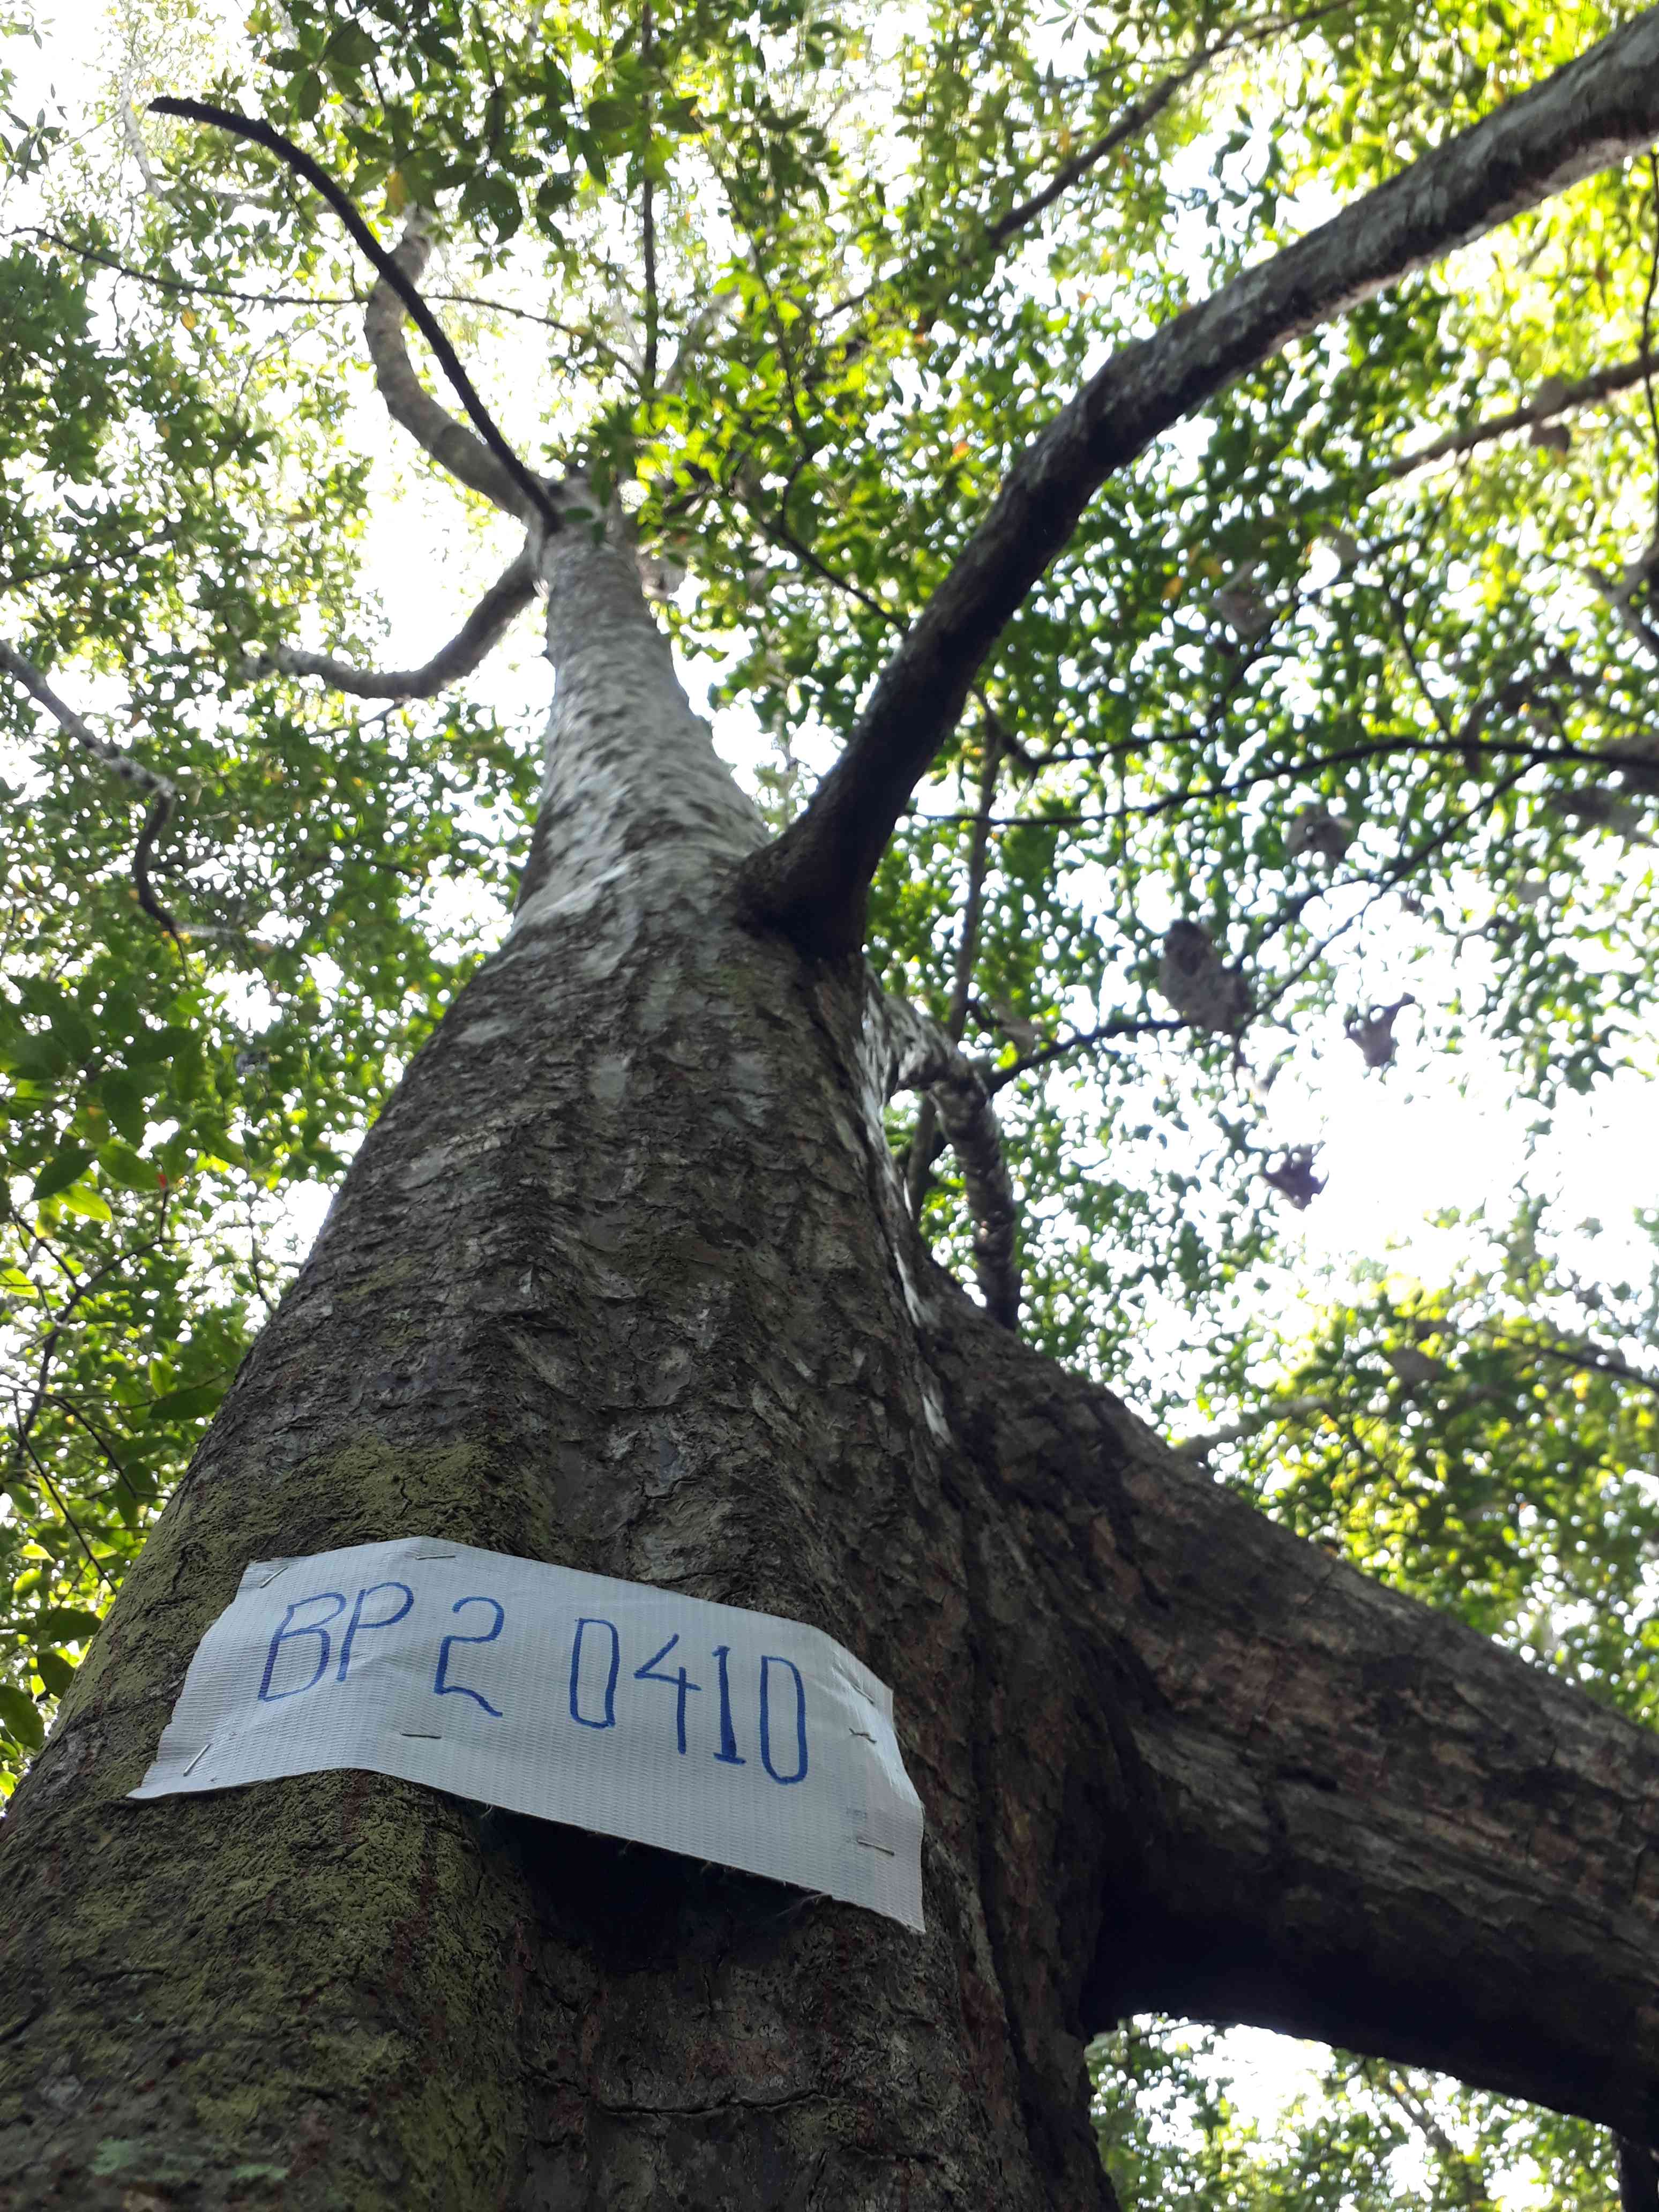 BP 2 0410